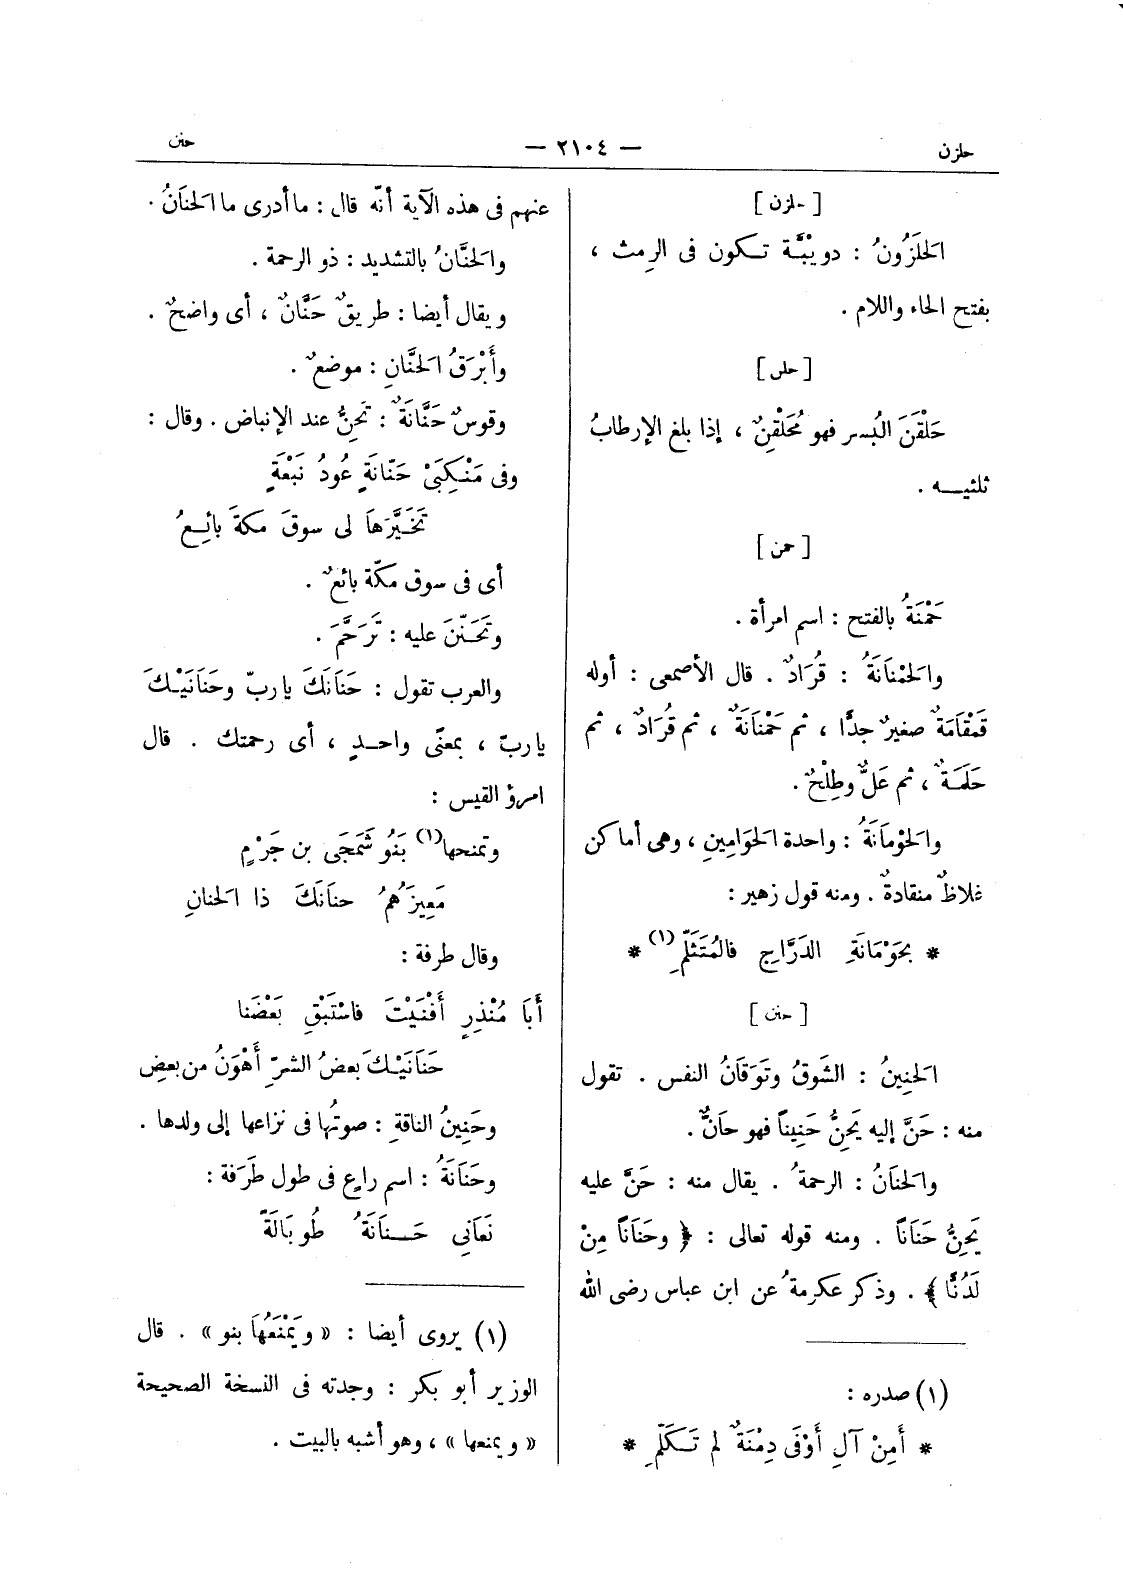 حلزن
— ٢١٠٤ —
حنن
[ حلزن ]
الحَلَزُونُ : دويْبَّة تكون فى الرِمث ،
بفتح الحاء واللام .
[ حلقن ]
حَلْقَنَ البُسر فهو مُحَلْقِنٌ ، إذا بلغ الإرطابُ
ثلثيه .
[ حمن ]
حَمْنَةُ بالفتح : اسم امرأة .
والحَمْنَانَةُ : قُرَادٌ . قال الأصمعى : أوله
قَمْقَامَةٌ صغيرٌ جدًّا ، ثم حَمْنَانَةٌ ، ثم قُرَادٌ ، ثم
حَلَمَةٌ ، ثم عَلٌّ وطِلْحٌ .
والحَوْمَانَةُ : واحدة الحَوَامِينِ ، وهى أماكن
غلاظٌ منقادةٌ . ومنه قول زهير :
* بحَوْمَانَةِ الدَرَّاجِ فالمُتَثَلَّمِ (١) *
[ حنن ]
الحَنِينُ : الشَوقُ وتَوَقَانُ النفس . تقول
منه : حَنَّ إليه يَحِنُّ حَنِيناً فهو حَانٌّ .
والحَنَانُ : الرحمةُ . يقال منه : حَنَّ عليه
يَحِنُّ حَنَاناً . ومنه قوله تعالى : ﴿ وحَنَاناً مِنْ
لَدُنَّا ﴾ . وذكر عكرمةُ عن ابن عباس رضى الله
(١) صدره :
* أَمِنْ آلِ أَوْفَى دِمْنَةٌ لم تَكَلَّمِ *
عنهم فى هذه الآية أنّه قال : ما أدرى ما الحَنَانُ .
والحَنَّانُ بالتشديد : ذو الرحمة .
ويقال أيضا : طريقٌ حَنَّانٌ ، أى واضحٌ .
وأَبْرَقُ الحَنَّانِ : موضعٌ .
وقوسٌ حَنَّانَةٌ : تَحِنُّ عند الإنباض . وقال :
وفى مَنْكِبَىْ حَنَّانَةٍ عُودُ نَبْعَةٍ
تَخَيَّرَهَا لى سوقَ مكةَ بائِعُ
أى فى سوق مكّة بائعٌ .
وتَحَنَّنَ عليه : تَرَحَّمَ .
والعرب تقول : حَنَانَكَ يا ربّ وحَنَانَيْكَ
يا ربّ ، بمعنًى واحدٍ ، أى رحمتك . قال
امرؤ القيس :
وتمنحها (١) بَنُو شَمَجَى بن جَرْمٍ
مَعِيزَهُمُ حنَانَكَ ذا الحنانِ
وقال طرفة :
أَبَا مُنْذِرٍ أَفْنَيْتَ فاسْتَبْقِ بَعْضَنا
حَنَانَيْكَ بعضُ الشرِّ أَهْوَنُ من بعضِ
وحَنِينُ الناقةِ : صوتُها فى نزاعها إلى ولدها .
وحَنَانَةُ : اسم راعٍ فى طول طَرَفة :
نَعَانِى حَنَانَةُ طُوبَالَةً
(١) يروى أيضا : « ويَمْنَعُهَا بنو » . قال
الوزير أبو بكر : وجدته فى النسخة الصحيحة
« ويمنعها » ، وهو أشبه بالبيت .